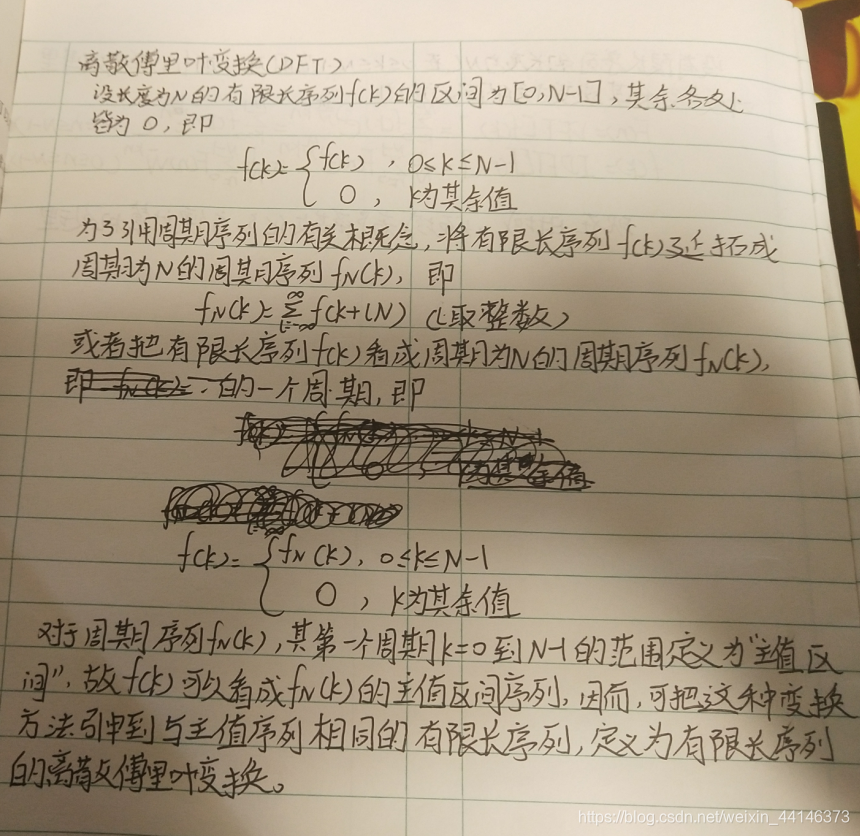 离散傅里叶变换(DFT)
设长度为N的有限长序列f(k)的区间为[0,N-1],其余各处
皆为0,即
f(k)={f(k),0≤k≤N-1
0,k为其余值
为了引用周期序列的有关概念,将有限长序列f(k)延拓成
周期为N的周期序列fN(k),即
fN(k)=∑_{l=-∞}^{∞}f(k+lN) (l取整数)
或者把有限长序列f(k)看成周期为N的周期序列fN(k),
即 的一个周期,即
f(k)={fN(k),0≤k≤N-1
0,k为其余值
对于周期序列fN(k),其第一个周期k=0到N-1的范围定义为“主值区
间”,故f(k)可以看成fN(k)的主值区间序列,因而,可把这种变换
方法引申到与主值序列相同的有限长序列,定义为有限长序列
的离散傅里叶变换。
https://blog.csdn.net/weixin_44146373